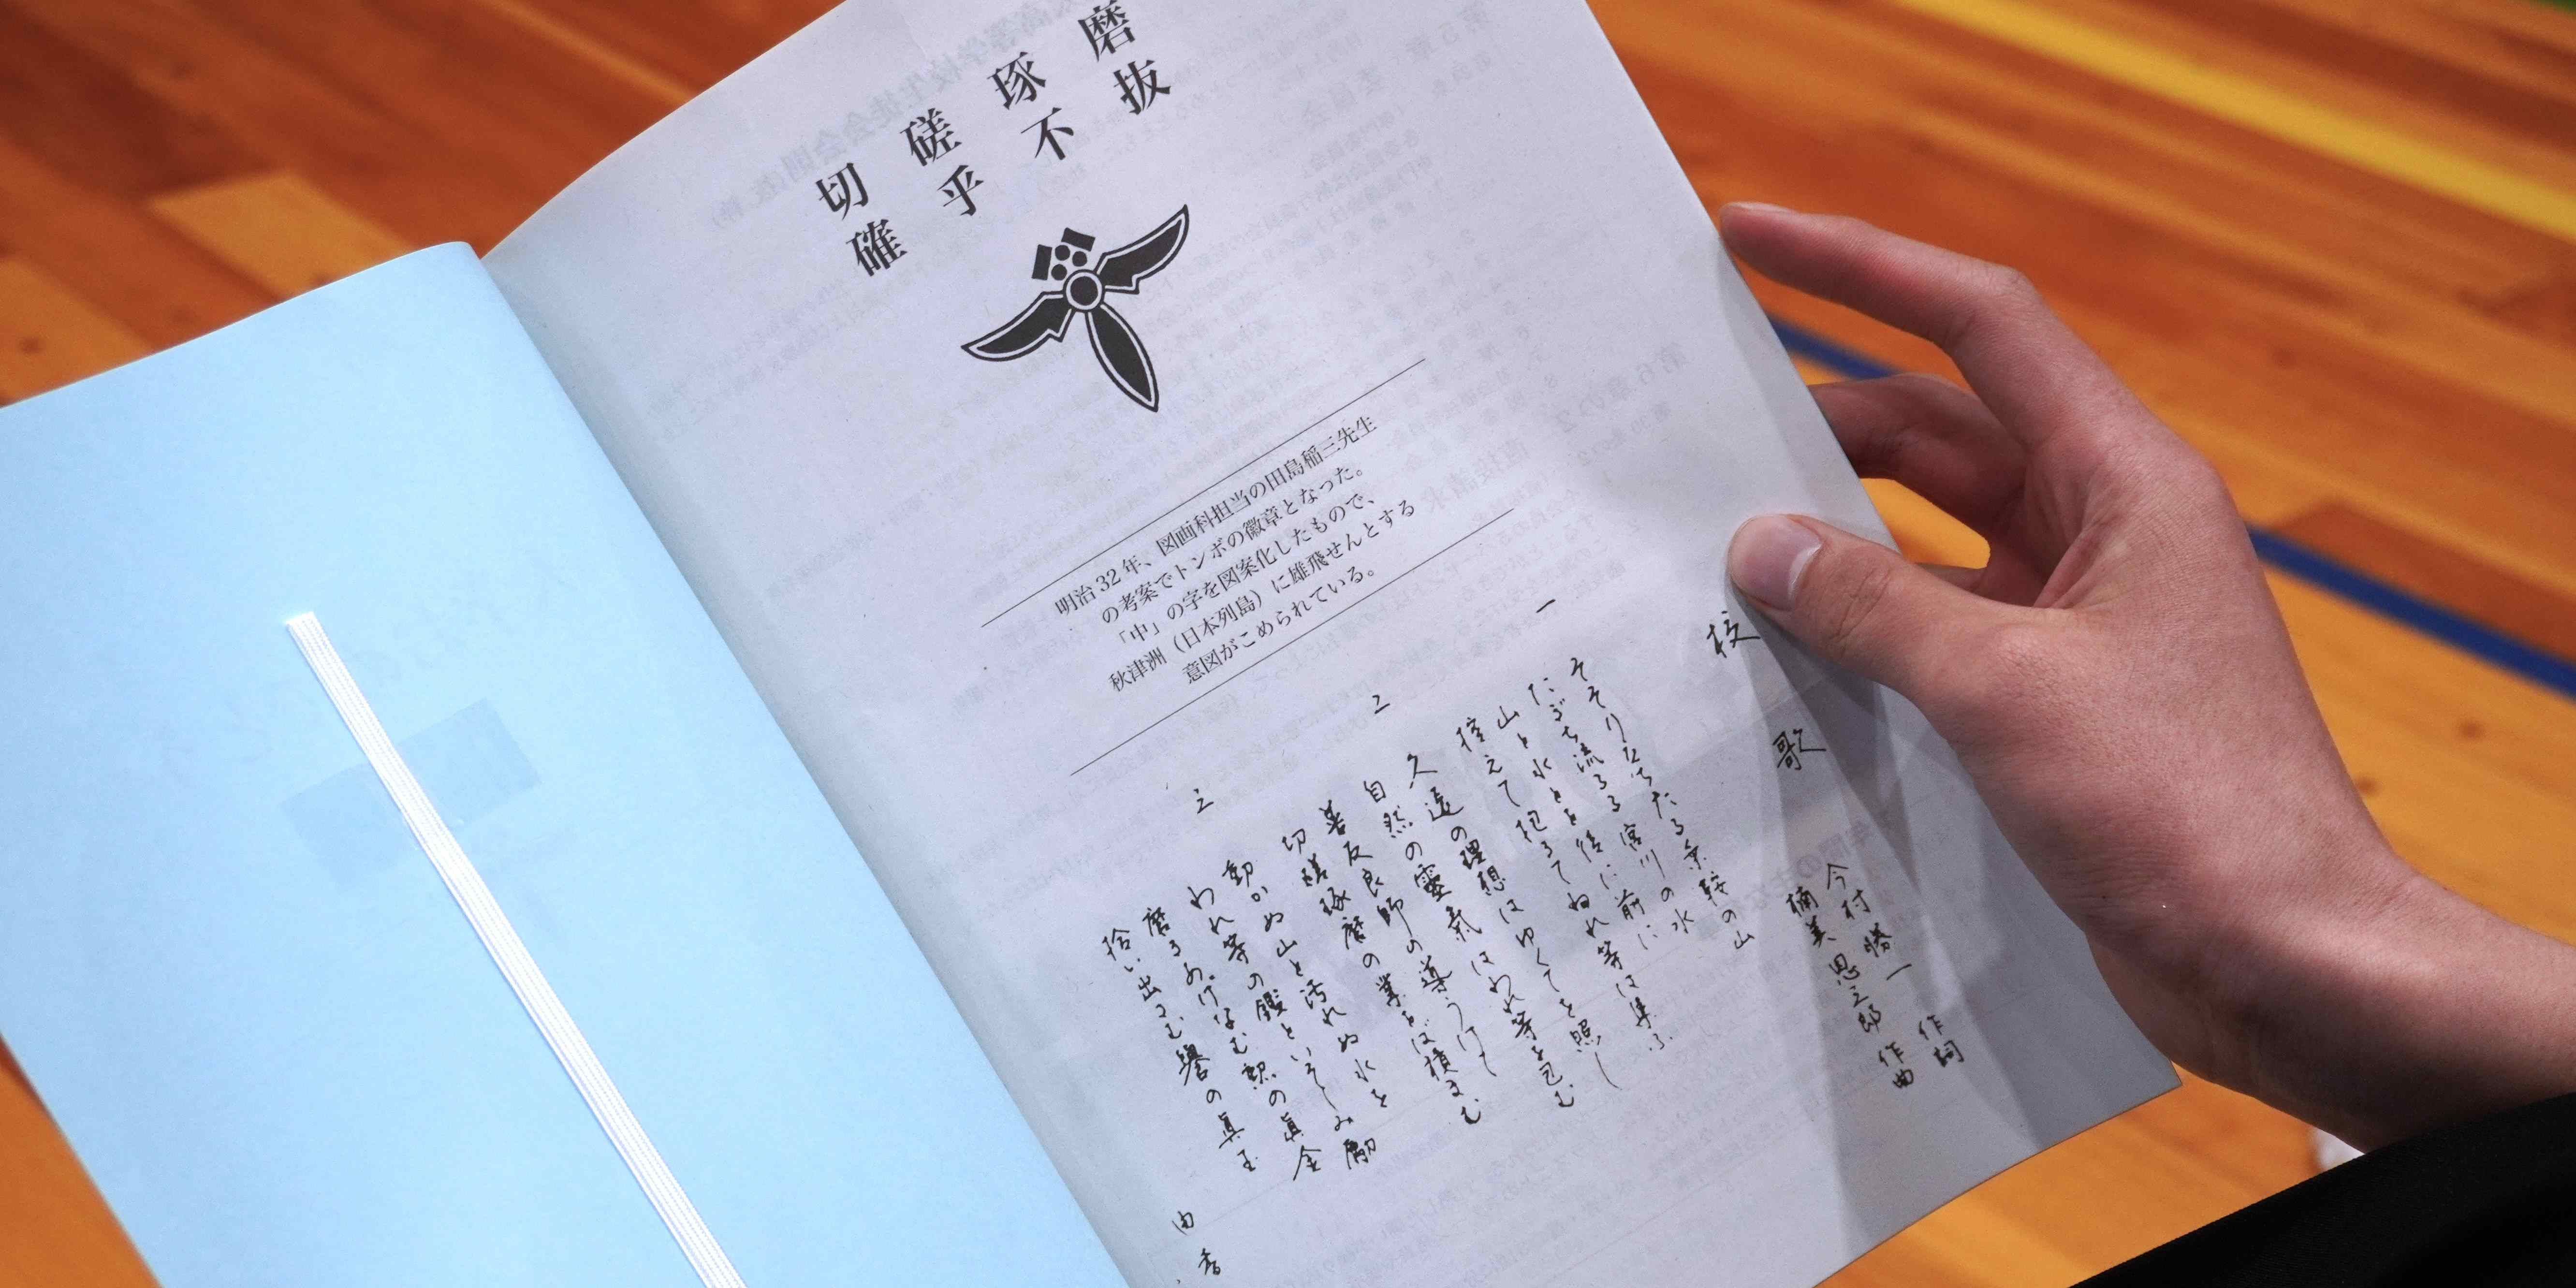 切磋琢磨
確乎不抜
明治32年、図画科担当の田島稲三先生
の考案でトンボの徽章となった。
「中」の字を図案化したもので、
秋津洲（日本列島）に雄飛せんとする
意図がこめられている。
校歌
今村勝一 作詞
楠美恩三郎 作曲
一
そそりたちたる乗鞍の山
たぎち流るる宮川の水
山と水とを後に前に
控えて抱きてわれ等は集ふ
二
久遠の理想はゆくてを照し
自然の靈氣はわれ等を包む
善友良師の導うけて
切磋琢磨の業をば積まむ
三
動かぬ山と汚れぬ水と
われ等の鑑といそしみ勵
磨きあげなむ勲の眞金
拾い出でむ譽の眞玉